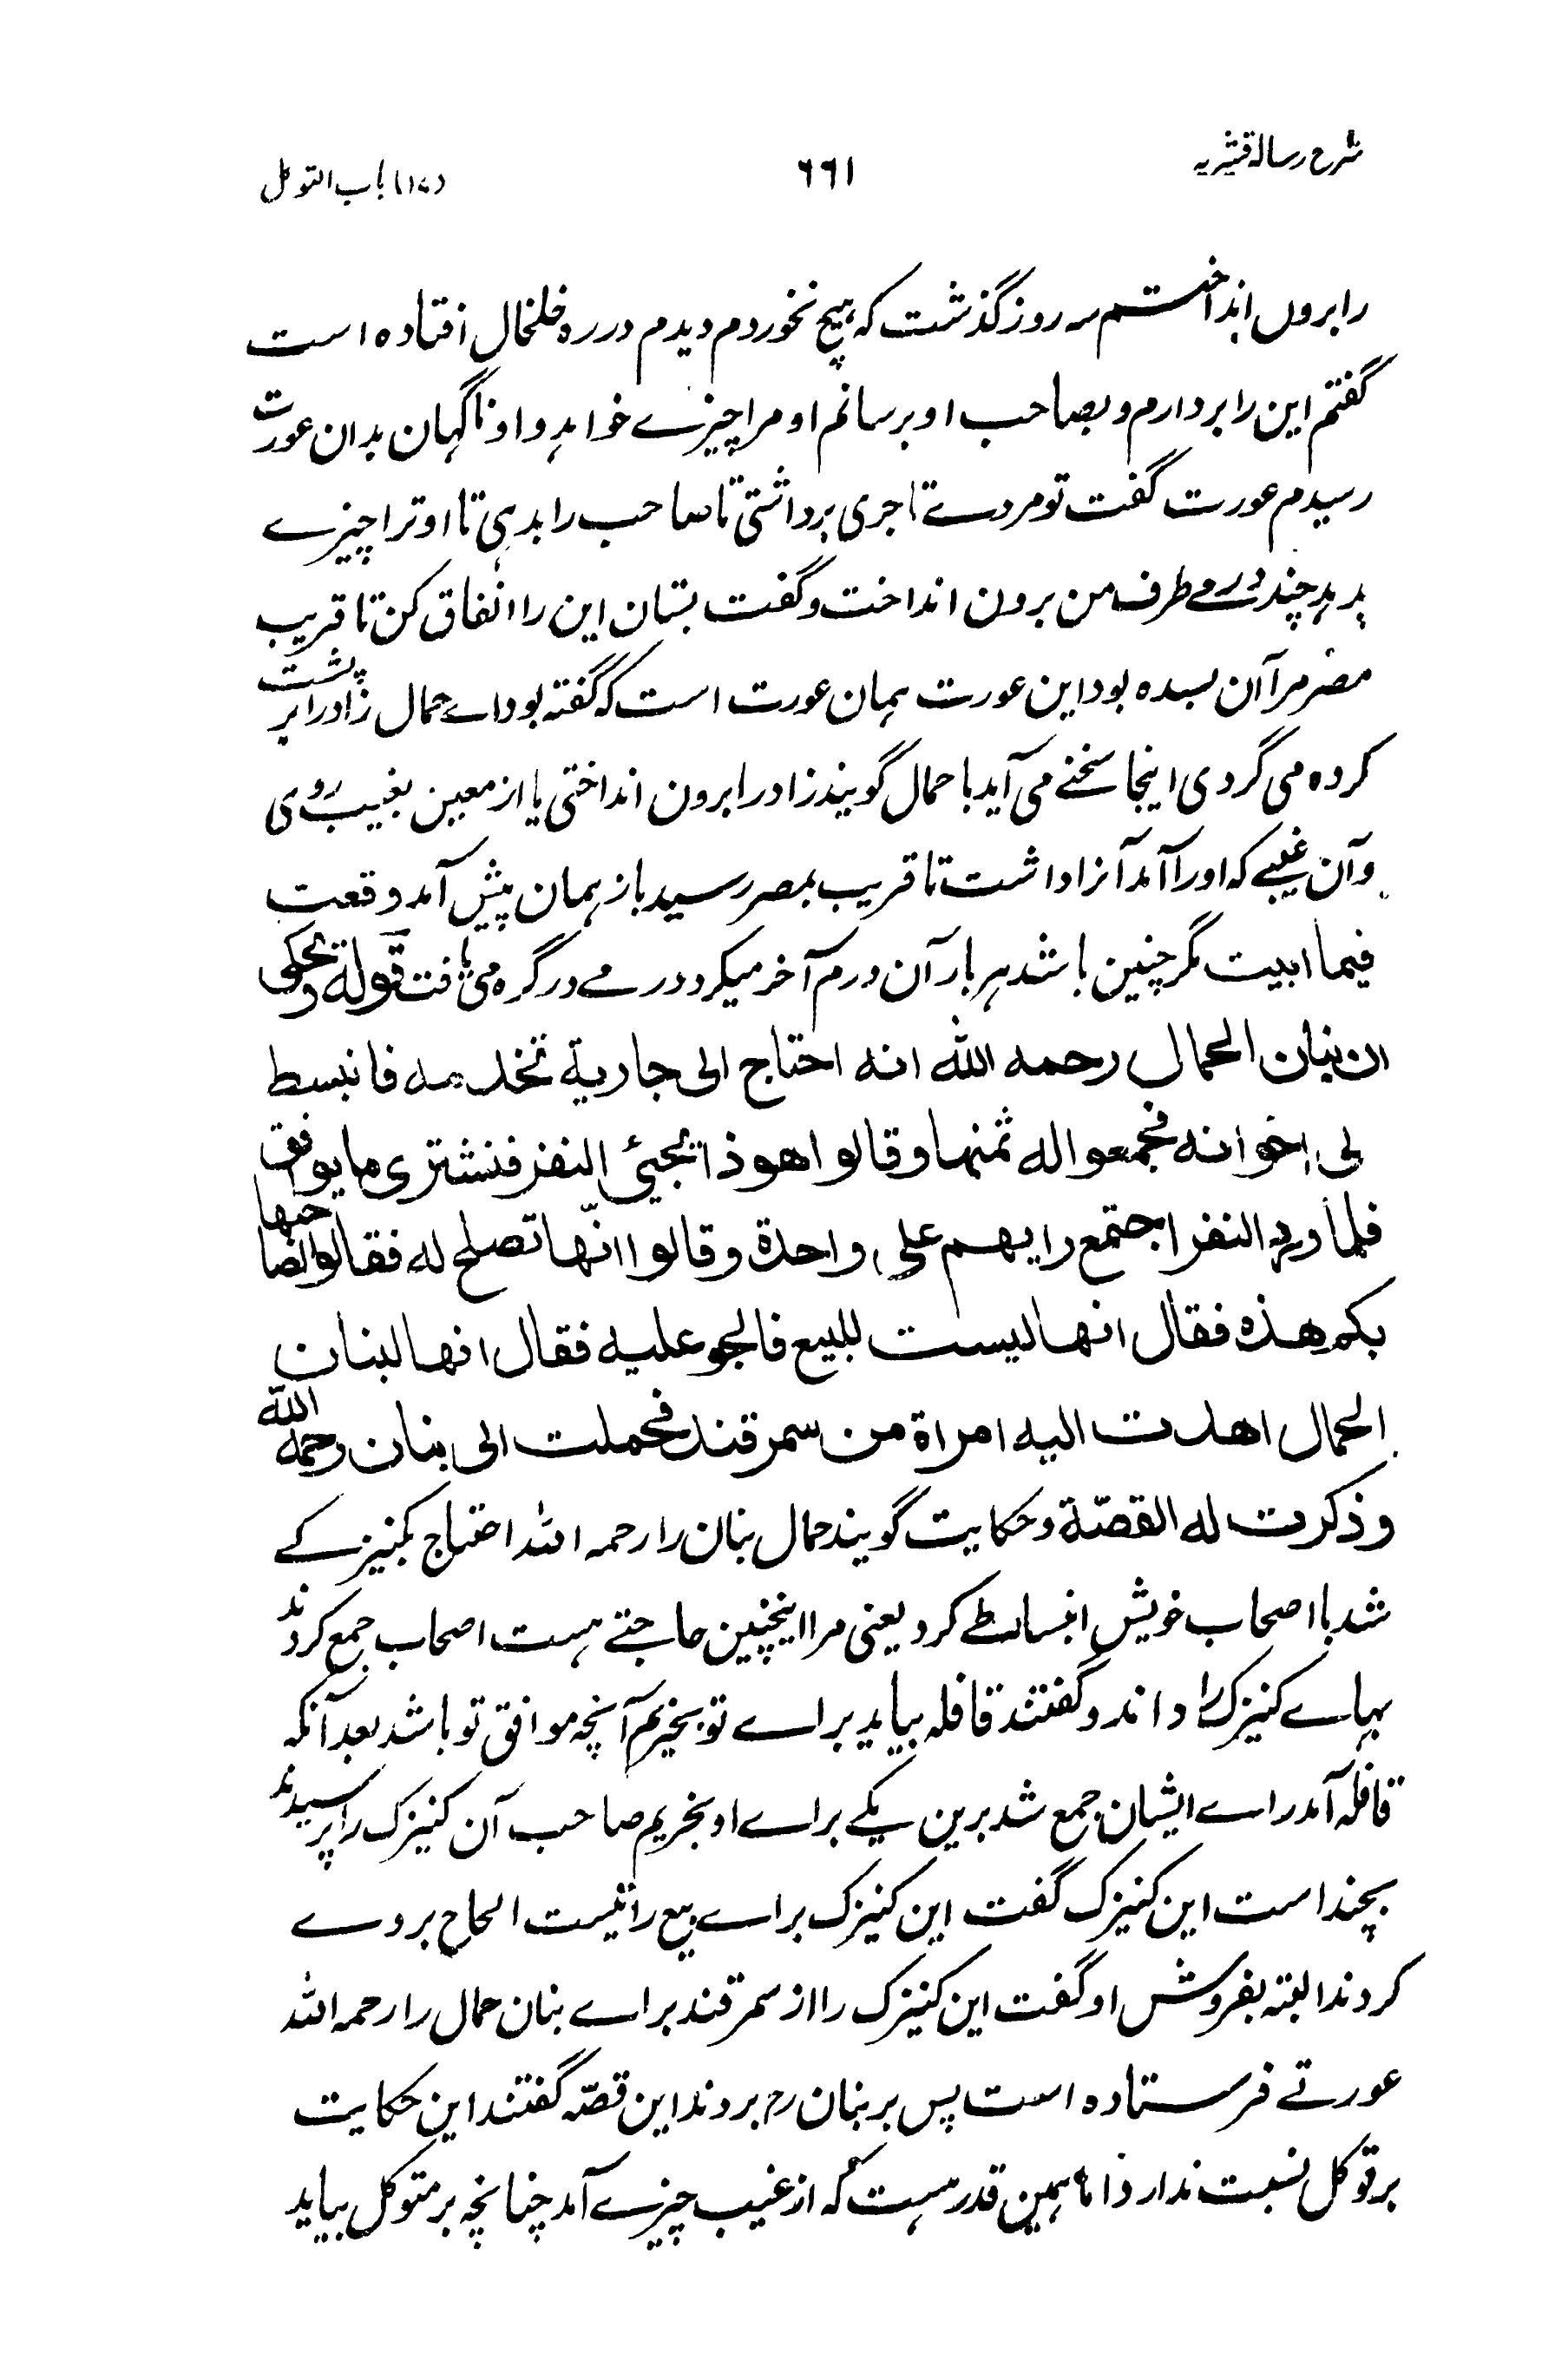 شرح رسالہ قشیریہ
۶۶۱
(۱۷) باب التوکل
را بروں انداختم سہ روز گذشت کہ ہیچ نخوردم دیدم در رہ خلخال افتادہ است
گفتم این را بردارم و بصاحب او برسانم او مرا چیزے خواہد داد ناگہان بدان عورت
رسیدم عورت گفت تو مردے تاجری برداشتی تا صاحب را بدہی تا او ترا چیزے
بدہد چند درمے طرف من برون انداخت و گفت بستان این را انفاق کن تا قریب
مصر مرا آن بسدہ بود این عورت ہمان عورت است کہ گفتہ بود اے حمال زاد را بر پشت
کردہ می گردی اینجا سخنے می آید با حمال گویند زاد را برون انداختی یا از معین بغیب روی
و آن غیبے کہ او را آمد آنرا داشت تا قریب بمصر رسید باز ہمان پیش آمد وقعت
فیما ابیت مگر چنین باشد ہر بار آن درم آخر میکرد درمے در گرہ می یافت قولہ ویحکی
ان بنان الحمال رحمہ اللہ انہ احتاج الی جاریۃ تخدمہ فانبسط
لی اخوانہ فجمعوا لہ ثمنہا وقالوا ھوذا یجیئ النفر فنشتری ما یوافق
فلما ورد النفر اجتمع رایھم علی واحدۃ وقالوا انّھا تصلح لہ فقالوا لصاحبھا
بکم ھذہ فقال انھا لیست للبیع فالحو علیہ فقال انھا لبنان
الحمال اھدت الیہ امراۃ من سمرقند فحملت الی بنان رحمہ اللہ
وذکرت لہ القصّۃ و حکایت گویند حمال بنان را رحمہ اللہ احتیاج بکنیزکے
شد با اصحاب خویش انبساطے کرد یعنی مرا اینچنین حاجتے ہست اصحاب جمع کردند
بہاے کنیزک را داند و گفتند قافلہ بیاید براے تو بخریم آنچہ موافق تو باشد بعد آنکہ
قافلہ آمد راے ایشان جمع شد برین یکے براے او بخریم صاحب آن کنیزک را پرسیدند
بچند است این کنیزک گفت این کنیزک براے بیع را نیست الحاح بر وے
کردند البتہ بفروش او گفت این کنیزک را از سمرقند براے بنان حمال را رحمہ اللہ
عورتے فرستادہ است پس بر بنان رح بردند این قصّہ گفتند این حکایت
بر توکل نسبت ندارد اما ہمین قدر ہست کہ از غیب چیزے آمد چنانچہ بر متوکل بیاید